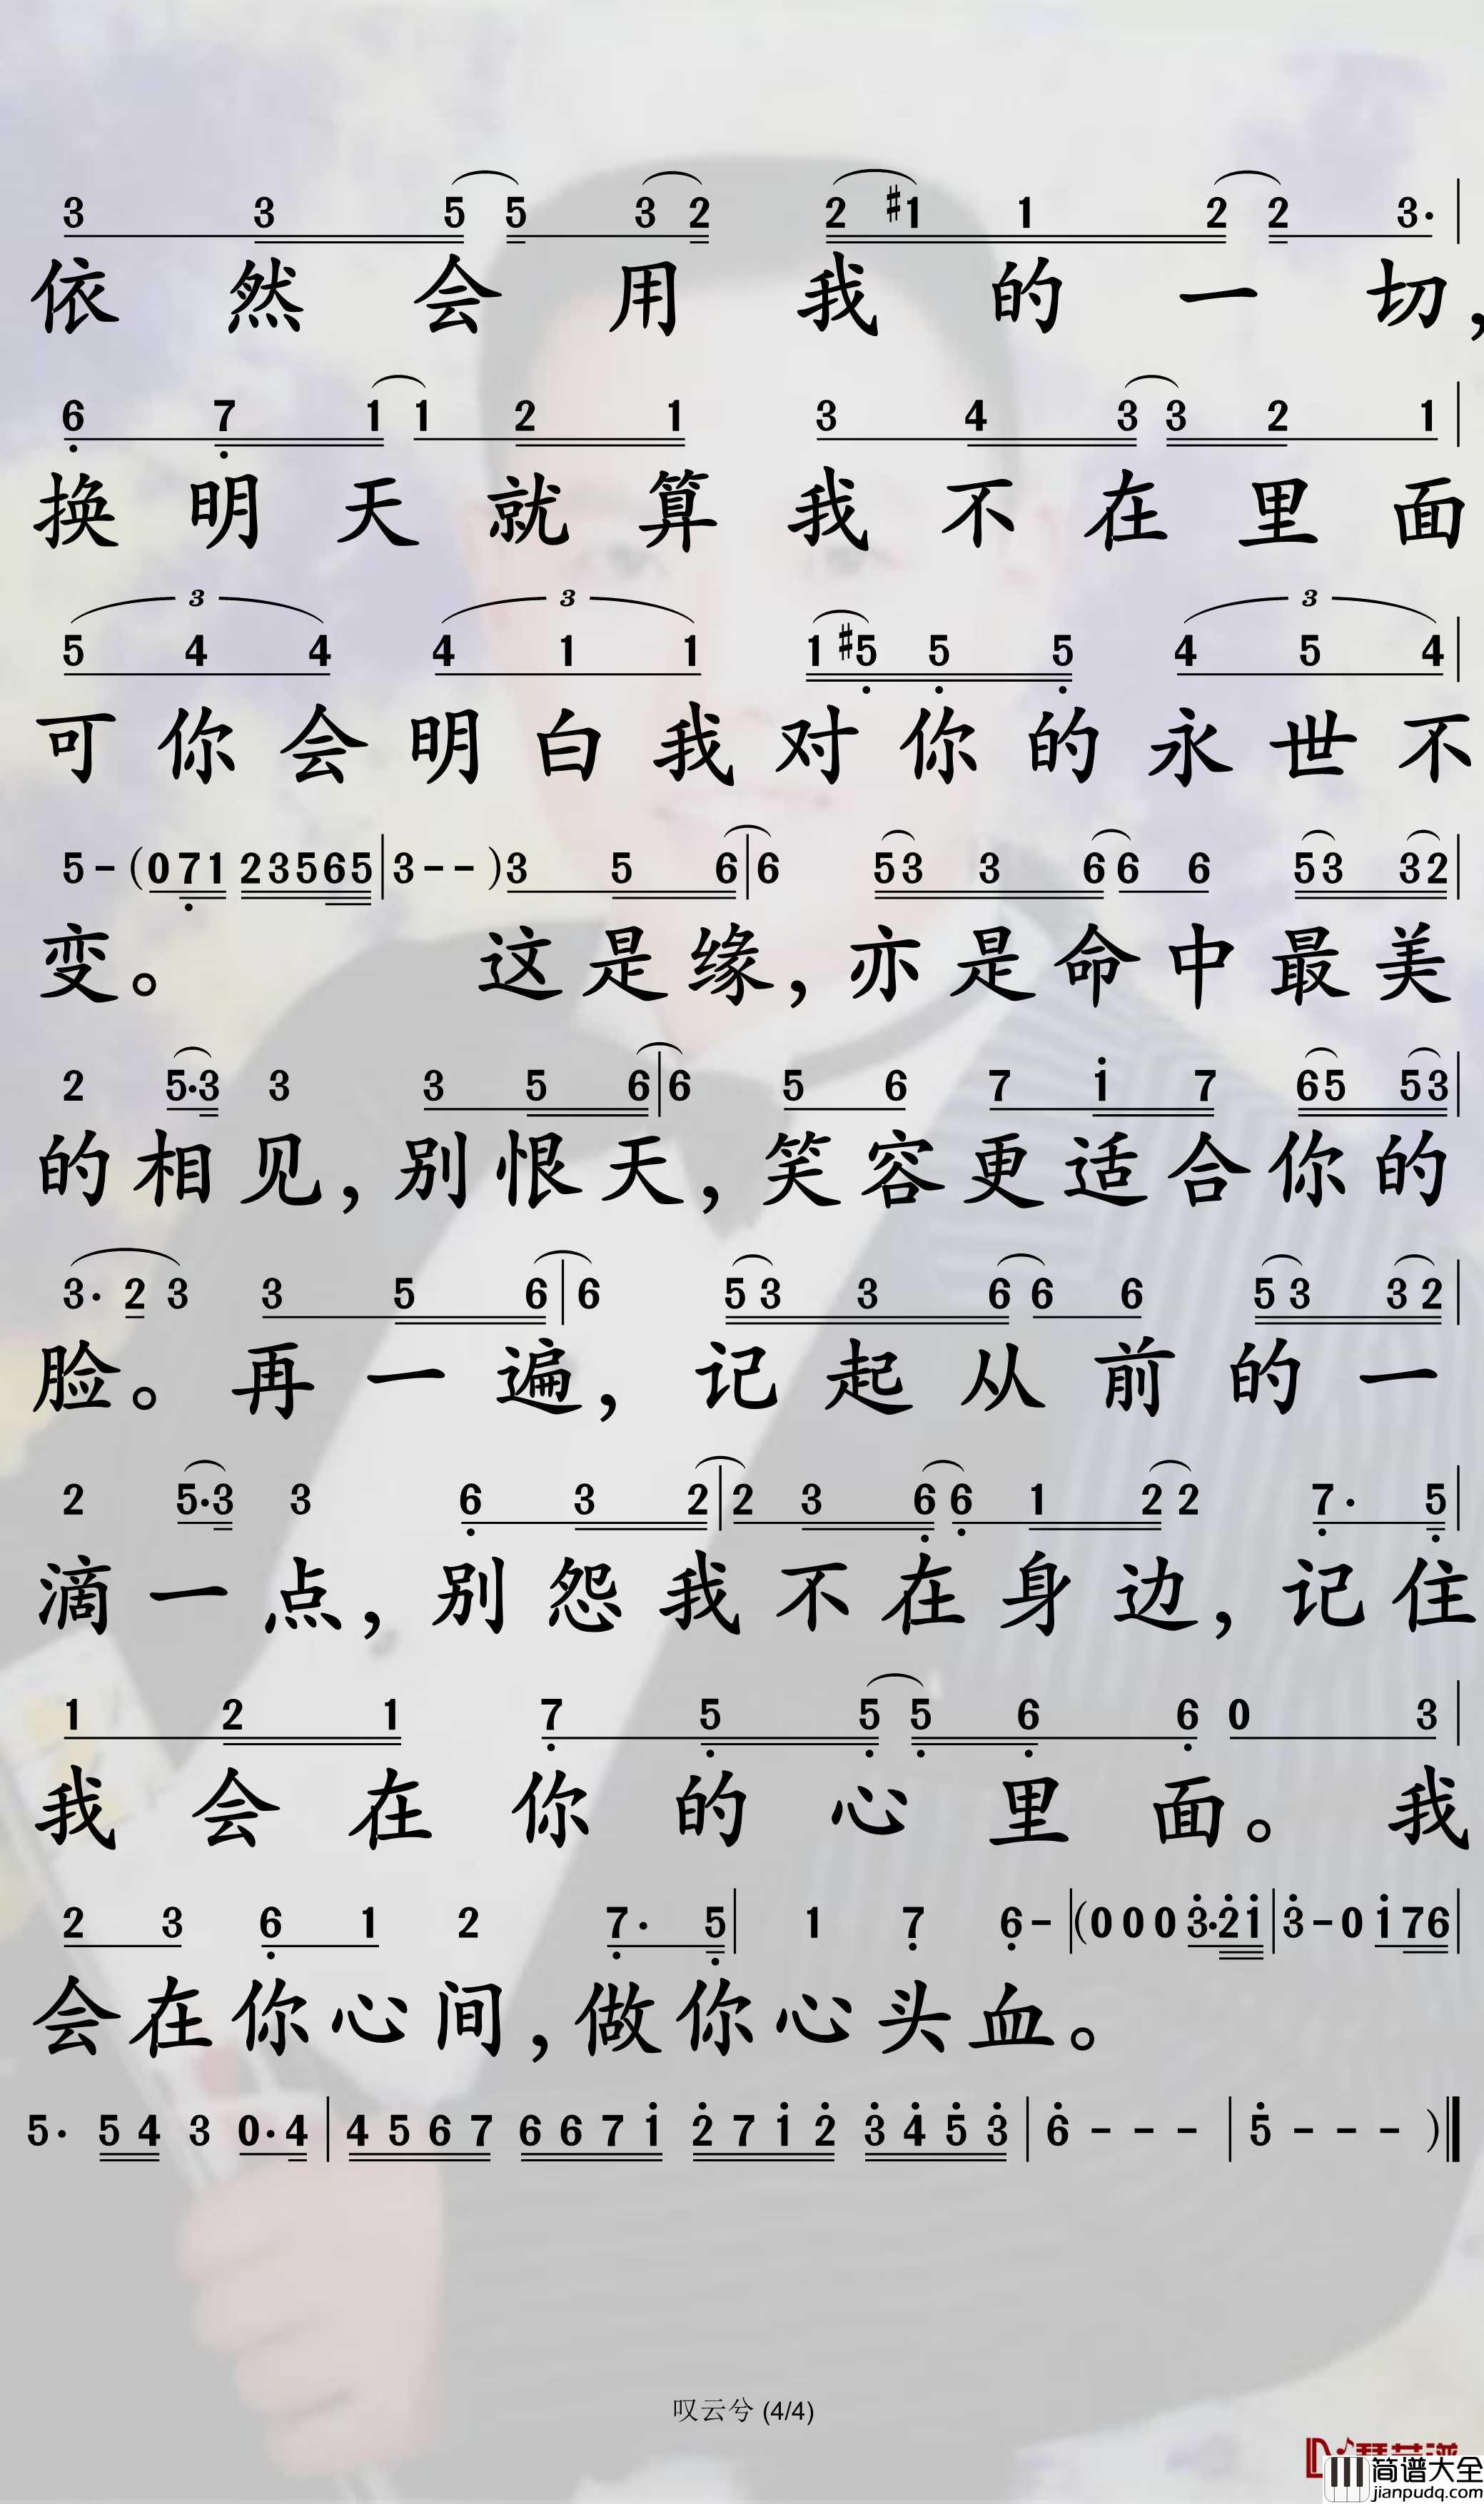 3 3 5 5 3 2 2 #1 1 2 2 3·|
依然会用我的一切,
6 7 1 1 2 1 3 4 3 3 2 1|
换明天就算我不在里面
3 3 3
5 4 4 4 1 1 1 #5 5 5 4 5 4|
可你会明白我对你的永世不
5 - (0 7 1 2 3 5 6 5|3 - - )3 5 6|6 5 3 3 6 6 6 5 3 3 2|
变。 这是缘,亦是命中最美
2 5·3 3 3 5 6|6 5 6 7 1 7 6 5 5 3|
的相见,别恨天,笑容更适合你的
3· 2 3 3 5 6|6 5 3 3 6 6 6 5 3 3 2|
脸。再一遍,记起从前的一
2 5·3 3 6 3 2|2 3 6 6 1 2 2 7· 5|
滴一点,别怨我不在身边,记住
1 2 1 7 5 5 5 6 6 0 3|
我会在你的心里面。我
2 3 6 1 2 7· 5|1 7 6 -|(0 0 0 3·2 1|3 - 0 1 7 6|
会在你心间,做你心头血。
5· 5 4 3 0·4|4 5 6 7 6 6 7 1 2 7 1 2 3 4 5 3|6 - - -|5 - - - )‖
叹云兮 (4/4)
简谱大全
jianpudq.com